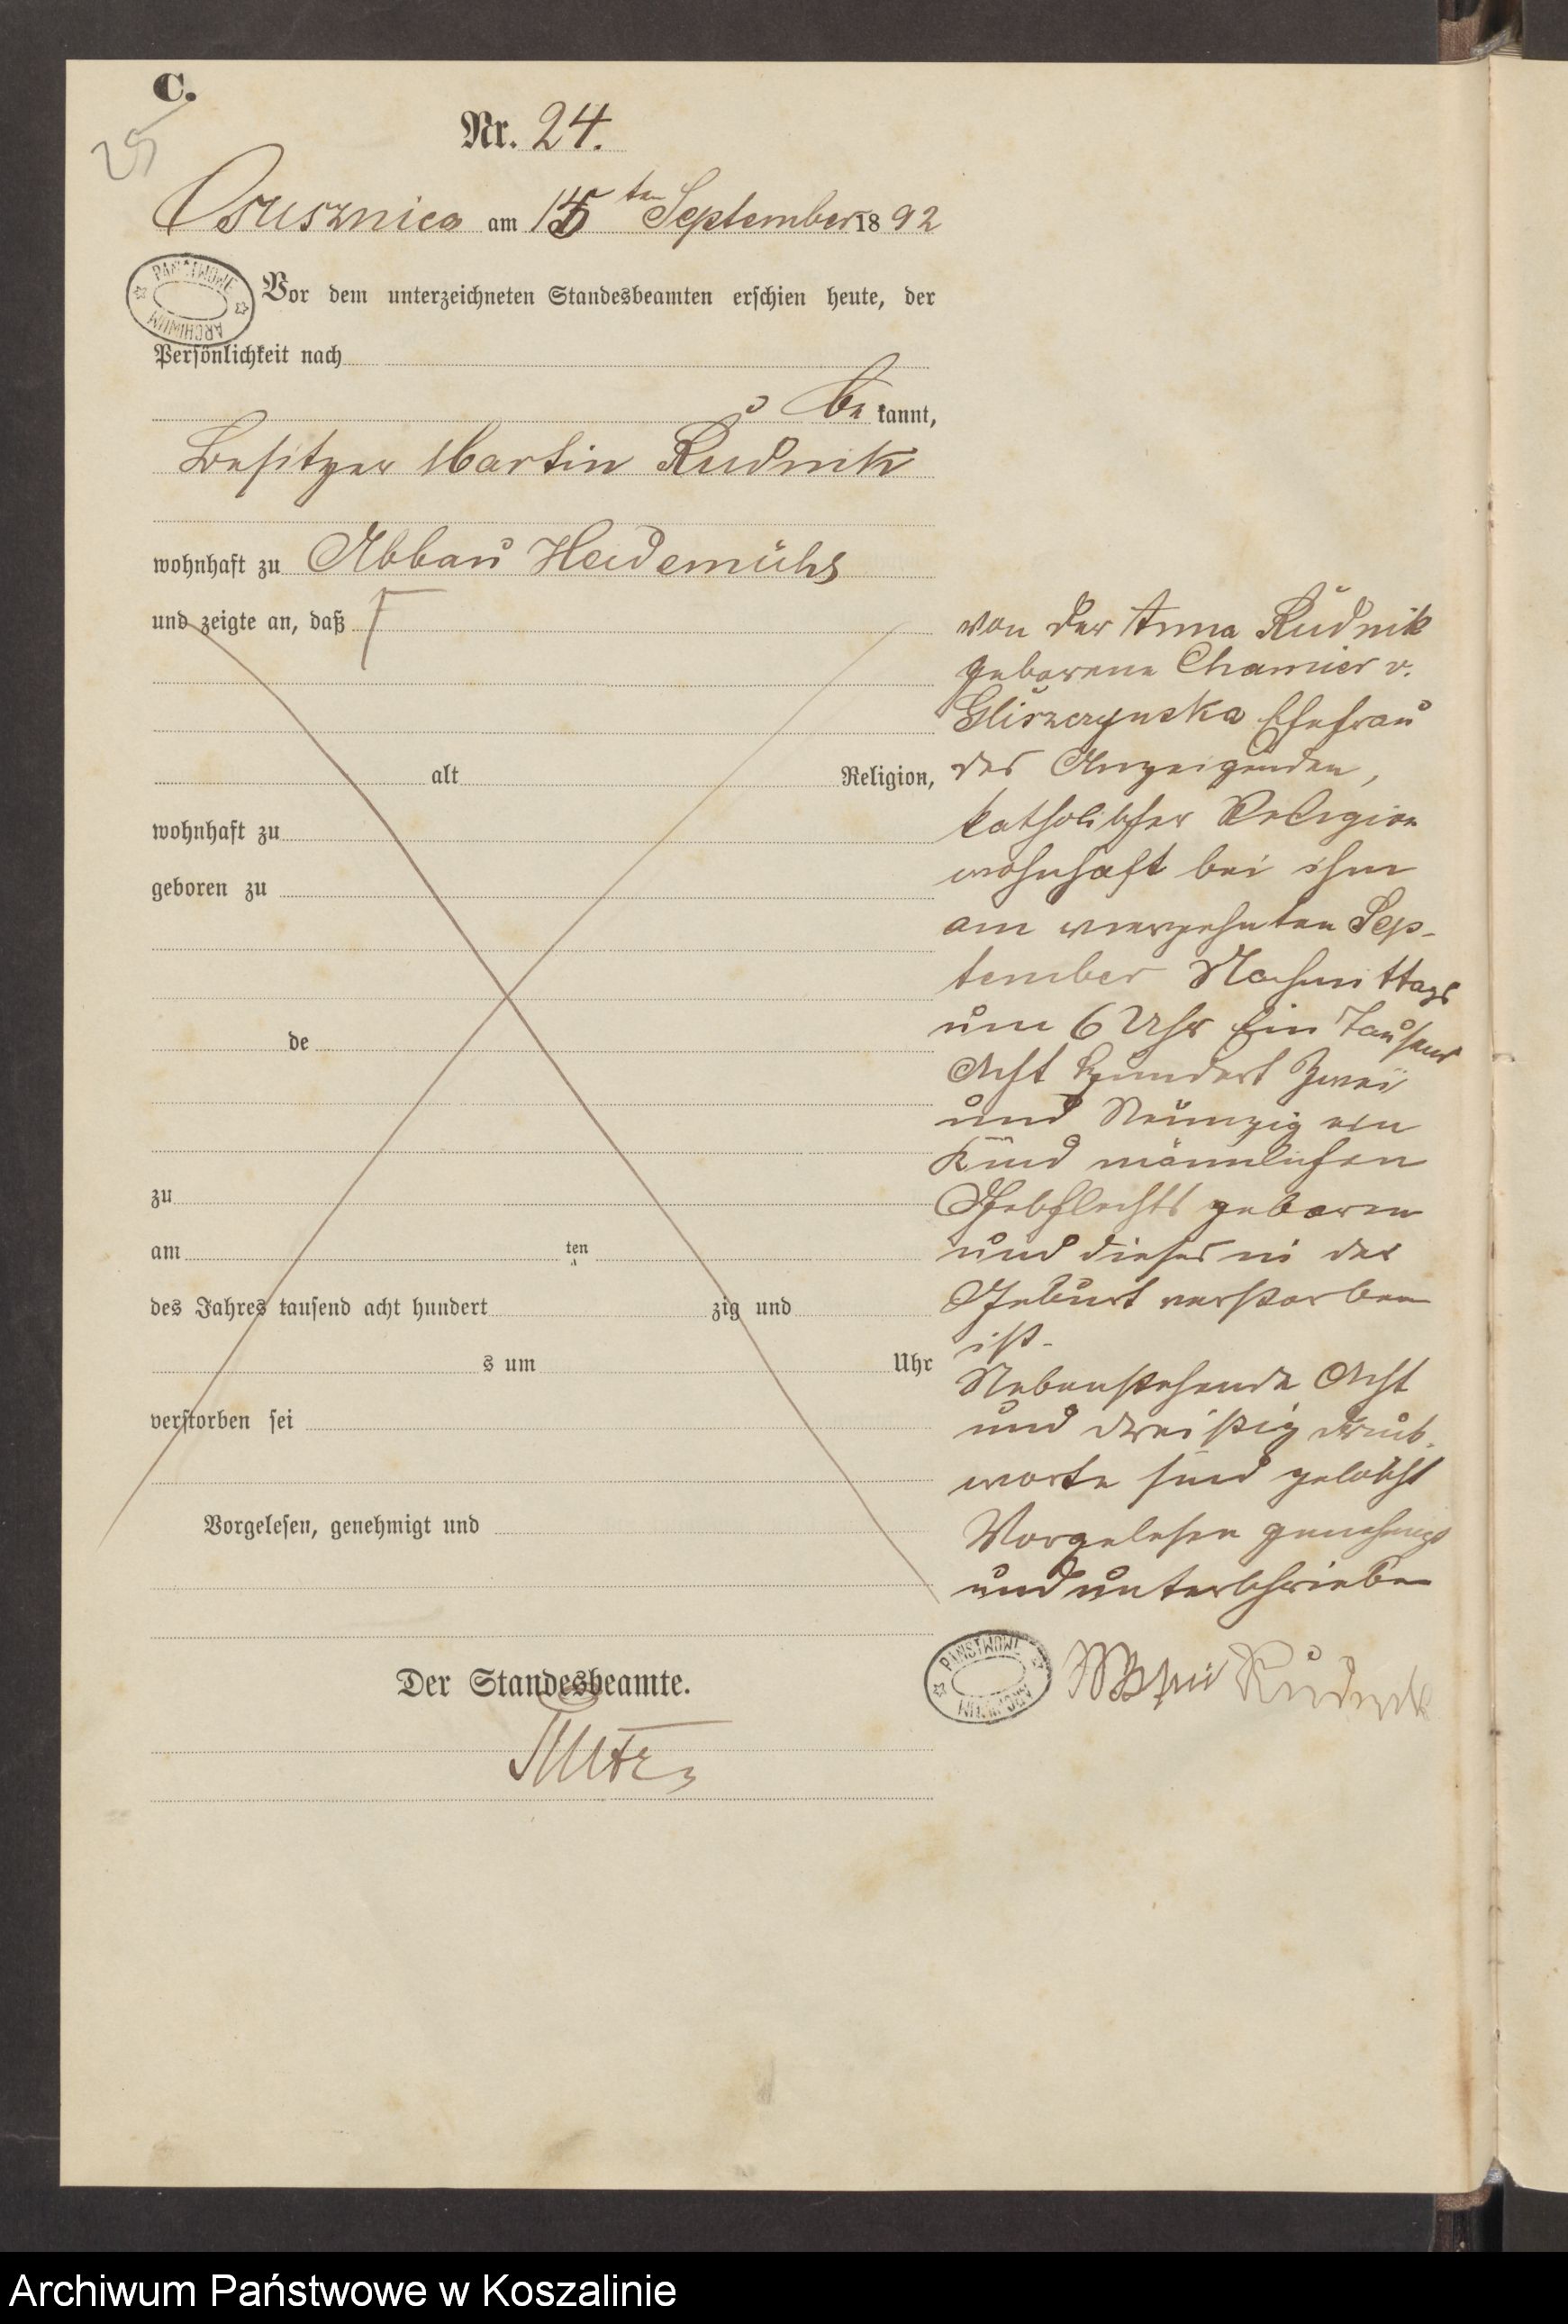 C.
25
Nr. 24.
Osusznica am 15ten September 1892
PAŃSTWOWE ARCHIWUM
Vor dem unterzeichneten Standesbeamten erschien heute, der
Persönlichkeit nach
be kannt,
Besitzer Martin Rudnik
wohnhaft zu Abbau
und zeigte an, daß
alt Religion,
wohnhaft zu
geboren zu
de
zu
am ten
des Jahres tausend acht hundert zig und
s um Uhr
verstorben sei
Vorgelesen, genehmigt und
Der Standesbeamte.
von der Anna Rudnik
geborene Chamier v.
Gliszczynska Ehefrau
des Anzeigenden,
katholischer Religion
wohnhaft bei ihm
am vierzehnten Sep-
tember Nachmittags
um 6 Uhr Ein Tausend
Acht Hundert Zwei
und Neunzig ein
Kind männlichen
Geschlechts geboren
und dieses in der
Geburt verstorben
ist.
Nebenstehende Acht
und dreißig Druck-
worte sind gelöscht
Vorgelesen genehmigt
und unterschrieben
PAŃSTWOWE ARCHIWUM
Rudnik
Archiwum Państwowe w Koszalinie